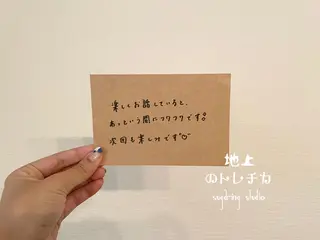 楽しくお話していると、
あっという間にフワフワです。
次回も楽しみです♡
地上
のトレチカ